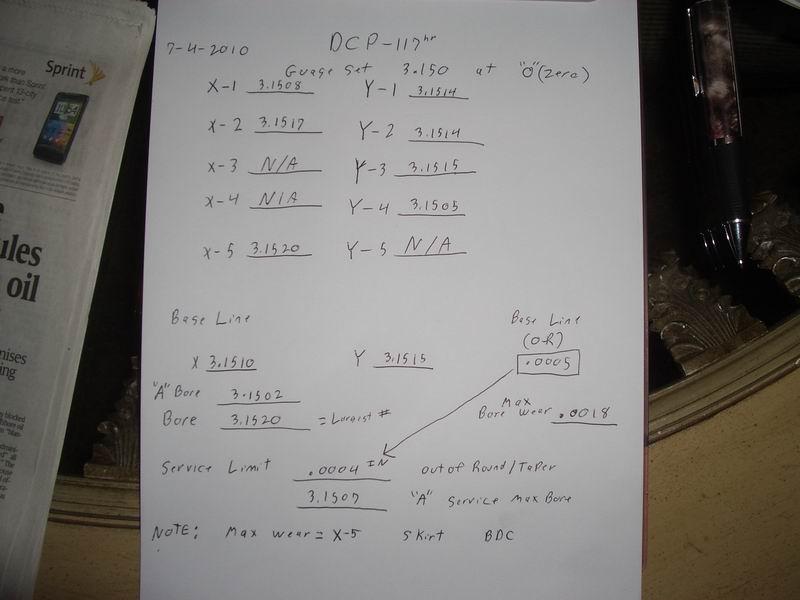 7-4-2010 DCP-117hr
Guage Set 3.150 at "O"(zero)
X-1 3.1508 Y-1 3.1514
X-2 3.1517 Y-2 3.1514
X-3 N/A Y-3 3.1515
X-4 N/A Y-4 3.1505
X-5 3.1520 Y-5 N/A
Base Line
X 3.1510 Y 3.1515
Base Line
(OR)
.0005
"A" Bore 3.1502
Bore 3.1520 = Largist #
Max
Bore wear .0018
Service Limit .0004 IN out of Round/Taper
3.1507 "A" Service Max Bore
NOTE: Max wear = X-5 Skirt BDC
Sprint
a more
than Sprint
city
test."
ules
oil
mises
ing
blocked